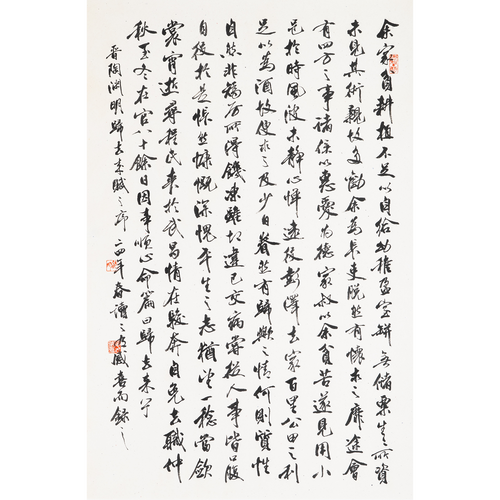 余家貧耕植不足以自給幼稚盈室缾無儲粟生生所資
未見其術親故多勸余為長吏脫然有懷求之靡途會
有四方之事諸侯以惠愛為德家叔以余貧苦遂見用小
邑於時風波未靜心憚遠役彭澤去家百里公田之利
足以為酒故便求之及少日眷然有歸歟之情何則質性
自然非矯厲所得饑凍雖切違己交病嘗從人事皆口腹
自役於是悵然慷慨深愧平生之志猶望一稔當斂
裳宵逝尋程氏妹喪於武昌情在駿奔自免去職仲
秋至冬在官八十餘日因事順心命篇曰歸去來兮
晉陶淵明歸去來賦之序 年春讀之有感喜而錄之